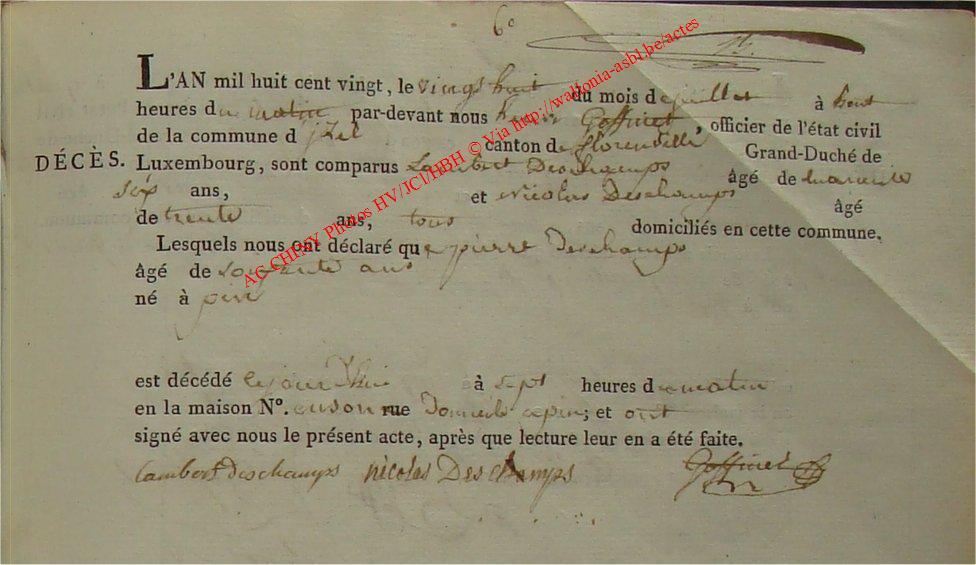 6º
L'AN mil huit cent vingt, le vingt huit du mois de juillet à huit
heures du matin par-devant nous henri Goffinet, officier de l'état civil
de la commune d'izel canton de florenville Grand-Duché de
DÉCÈS. Luxembourg, sont comparus Lambert Deschamps âgé de quarante
six ans, et Nicolas Deschamps âgé
de trente ans, tous domiciliés en cette commune.
Lesquels nous ont déclaré que pierre Deschamps
âgé de soixante ans
né à pin
est décédé cejourdhui à sept heures du matin
en la maison Nº. en son rue Domicile a pin; et ont
signé avec nous le présent acte, après que lecture leur en a été faite.
Lambert deschamps nicolas Deschamps Goffinet
AC CHINY Photos HV/JCI/HBH © Via http://wallonia-asbl.be/actes